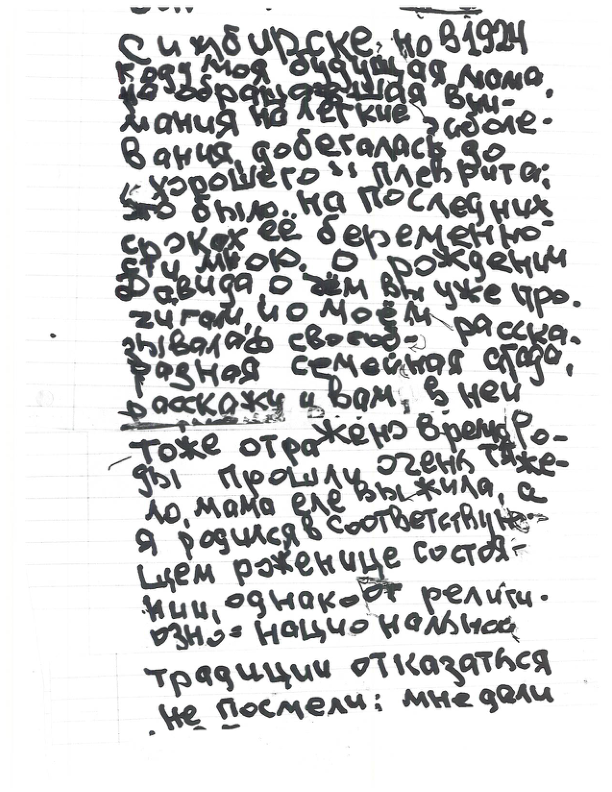 Симбирске, но в 1924
году моя будущая мама,
не обращавшая вни-
мания на лёгкие заболе-
вания, добегалась до
"хорошего" плеврита;
это было на последних
сроках её беременно-
сти мною. О рождении
Давида о чём вы уже про-
читали, и о моём расска-
зывалась своеоб-
разная семейная сага,
расскажу и вам, в ней
тоже отражено время. Ро-
ды прошли очень тяже-
ло, мама еле выжила, а
я родился в соответствую-
щем роженице состоя-
нии, однако от религи-
озно-национальной
традиции отказаться
не посмели: мне дали